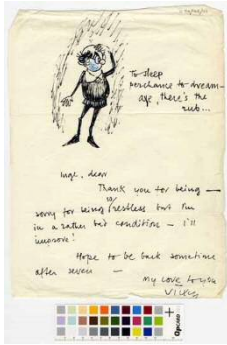 To sleep
perchance to dream—
aye, there's the
rub...
Inge, dear
Thank you for being —
sorry for being so restless but I'm
in a rather bad condition — I'll
improve!
Hope to be back sometime
after seven —
My love to you
Vicky